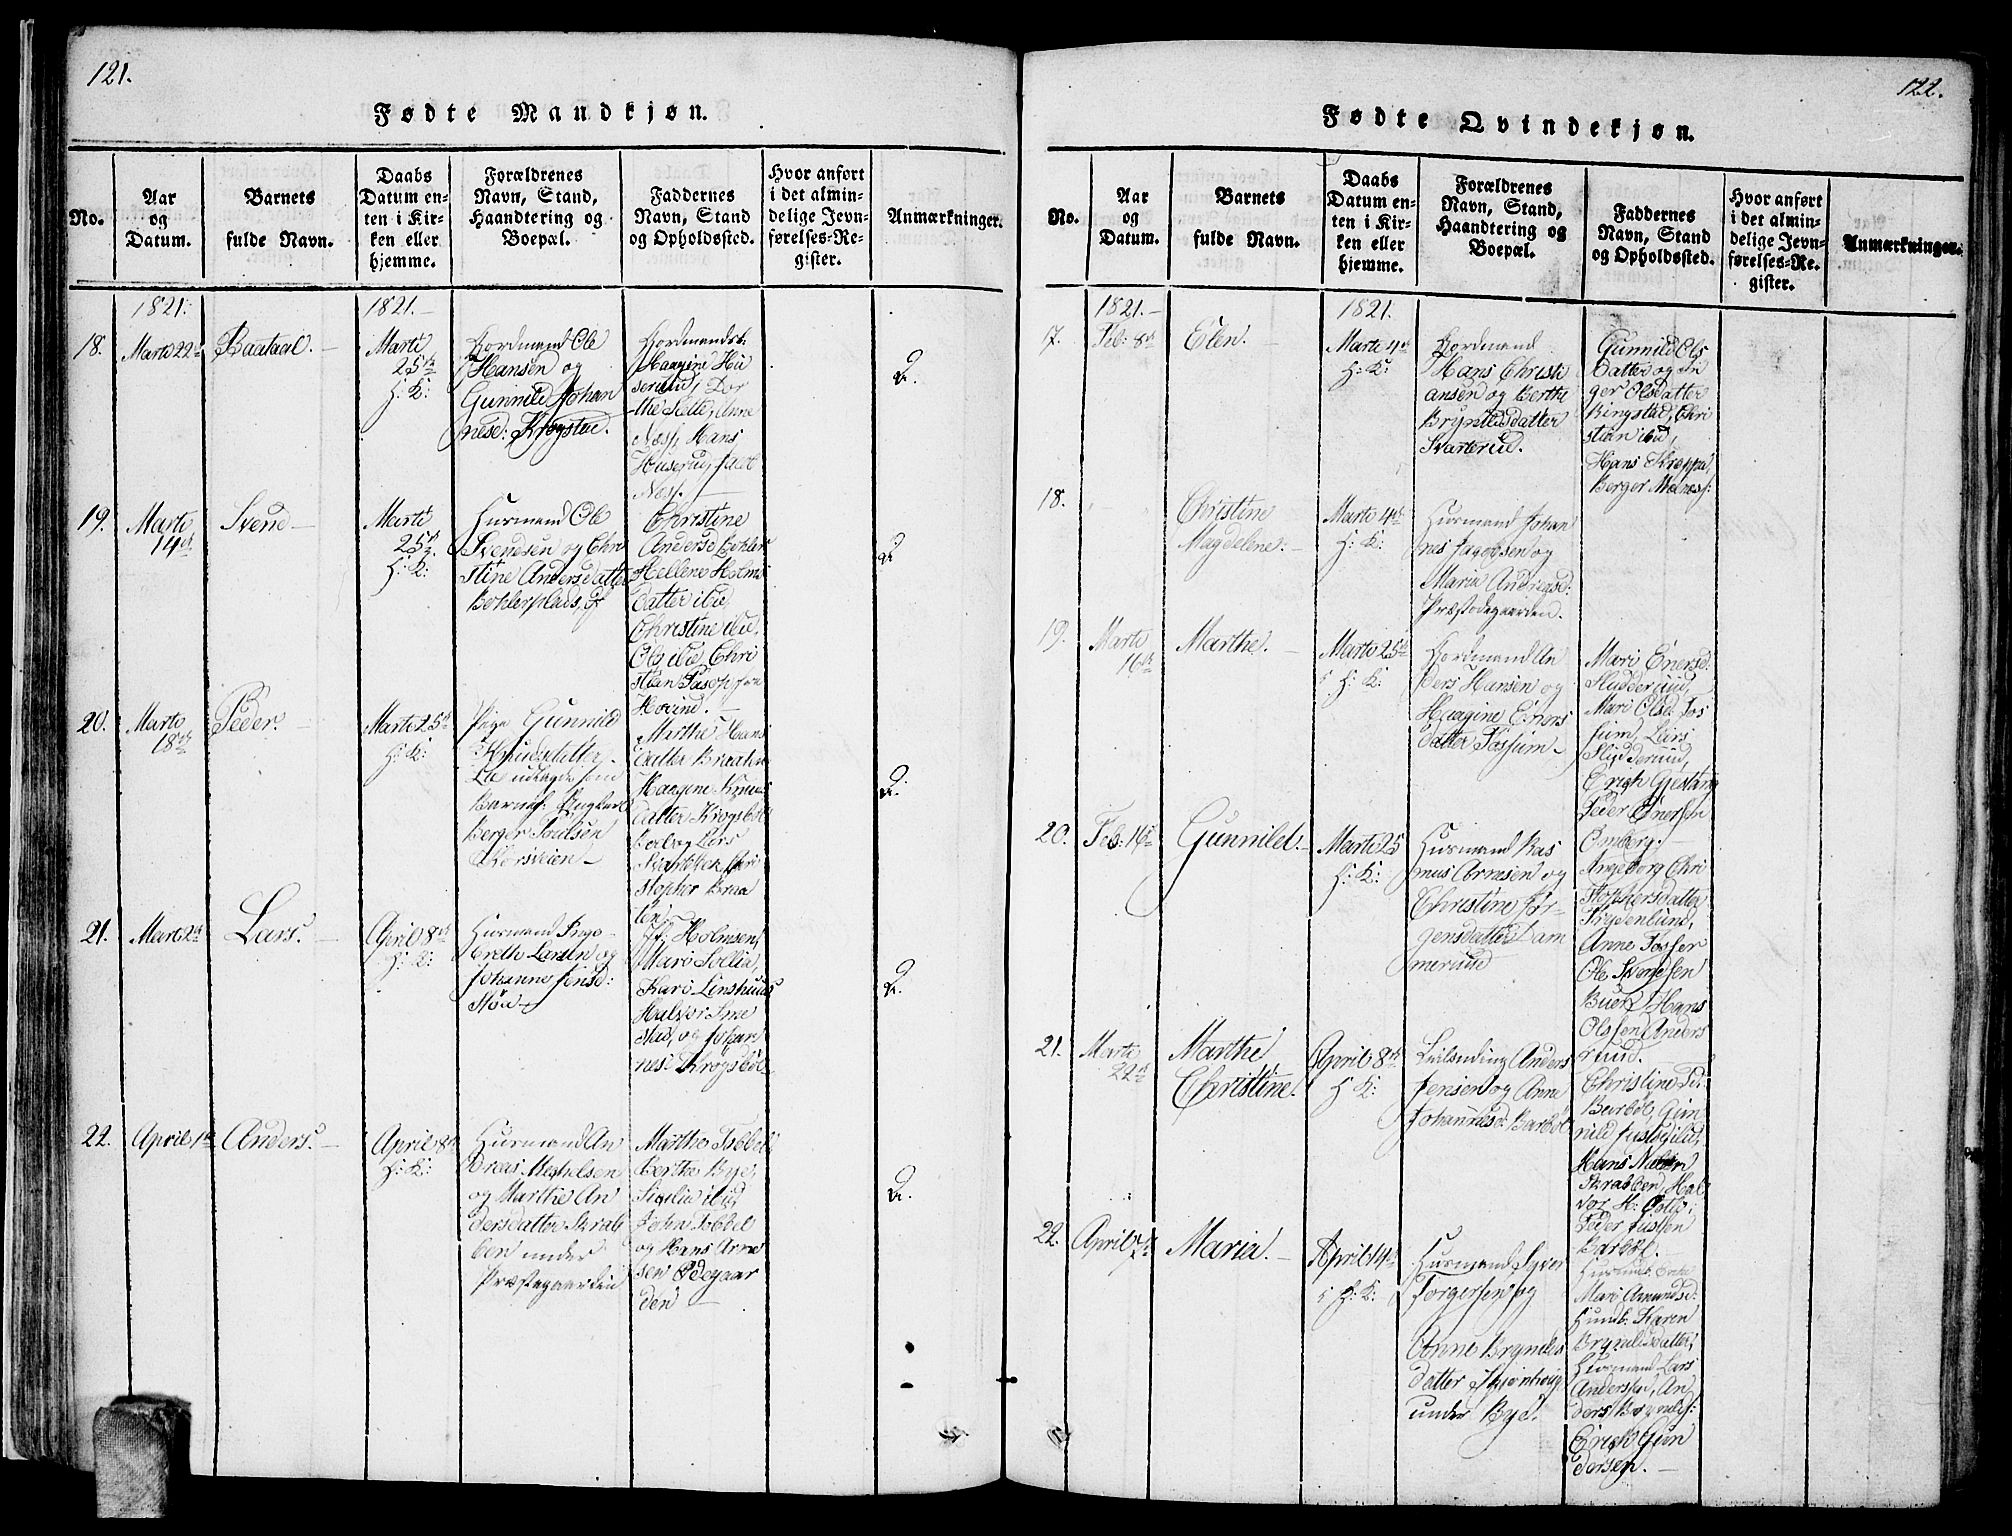 121.
Fødte Mandkjøn.
No.
Aar
og
Datum.
Barnets
fulde Navn.
Daabs
Datum en-
ten i Kir-
ken eller
hjemme.
Forældrenes
Navn, Stand,
Haandtering og
Boepæl.
Faddernes
Navn, Stand
og Opholdssted.
Hvor anført
i det almin-
delige Jevn-
førelses-Re-
gister.
Anmærkninger.
1821.
1821.
18.
Marts 22
Marti
25
H: K:
Gordmand Ole
Hansen og
Gunnild Johan
nesd: Krogstad.
Gordmandsk.
Haagine Hu
serud, Dor
the Sætte, Anne
Næss, Hans
Huserud, Jacob
Næss.
19.
Marti
14
Svend
Marti
25
H: K:
Husmand Ole
Svendsen og Chri
stine Andersdatter
Christine
Hellene Holms
datter ibid,
Christine ibid,
Ole ibid, Chri
stian
Hovind.
20.
Marti
18
Peder.
Marti 25
H: K:
Pige Gunnild
Knudsdatter
udlagde som
Barnef: Ungkarl
Berger Poulsen
Korsveien
Marthe Hans
datter Braathen
Haagine Knuds
datter Krogsbøl
Lars
Chri
stopher Braa
ten
21.
Lars.
April 8
H: K:
Husmand Inge
breth Larsen og
Johanne Jensd:
Støa
Holmsen,
Mari Sollia,
Kari Linshuus
Halvor Sme
stad, og Johan
nes Krogsbøl
22.
April 1
Anders.
April 8
H: K:
Husmand An
dreas Michelsen
og Marthe An
dersdatter Skrab
ben under
Præstegaarden
Marthe Tobbel
Berthe Bye,
Sigilia ibid,
John Tobbel
og Hans Arne
sen Ødegaar
den
122.
Fødte Qvindekjøn.
No.
Aar
og
Datum.
Barnets
fulde Navn.
Daabs
Datum en-
ten i Kir-
ken eller
hjemme.
Forældrenes
Navn, Stand,
Haandtering og
Boepæl.
Faddernes
Navn, Stand
og Opholdssted.
Hvor anført
i det almin-
delige Jevn-
førelses-Re-
gister.
Anmærkninger.
1821.
1821.
17.
Feb: 8
Elen.
Marti 4
H: K:
Gordmand
Hans Christi
ansen og Berthe
Bryntelsdatter
Svarterud.
Gunnild Ols
datter og In
ger Olsdatter
Ringstad, Chri
stian ibid,
Hans Kroppa,
Berger Melnæss:
18.
Christine
Magdelene.
Marti 4
H: K:
Husmand Johan
nes Jacobsen og
Maria Andreasd:
Præstegaarden.
19.
Marti
16
Marthe.
Marti 25
H: K:
Gordmand An
ders Hansen og
Haagine Eners
datter Fossum
Mari Enersd.
Sludderud,
Mari Olsd: Fos
sum, Lars
Sludderud,
Erich Gjestang
Peder Enersen
Omberg.
20.
Feb: 16
Gunnild.
Marti 25
H: K:
Husmand Ras
mus Arnesen og
Christine Jør-
gensdatter Ham
merud
Ingeborg Chri
stophersdatter
Frydenlund,
Anne Fosser
Ole Svendsen
Buer, Hans
Olssen Anders
rud.
21.
Marti
22
Marthe
Christine.
April 8
H: K:
Leilending Anders
Jensen og Anne
Johannesd: Barbøl
Christine
Barbøl, Gun
nild
Hans Nilsen
Skrabben, Hal
vor
Peder Justsen
Barbøl.
22.
April
Maria.
April 14
H: K:
Husmand Syver
Torgersen og
Anne Bryntels
datter Skjønhoug
under Bye.
Mari Amundsd:
Karen
Bryntelsdatter,
Husmand Lars
Anderssen, An
ders Bryntels:
Erich Gun
dersen.